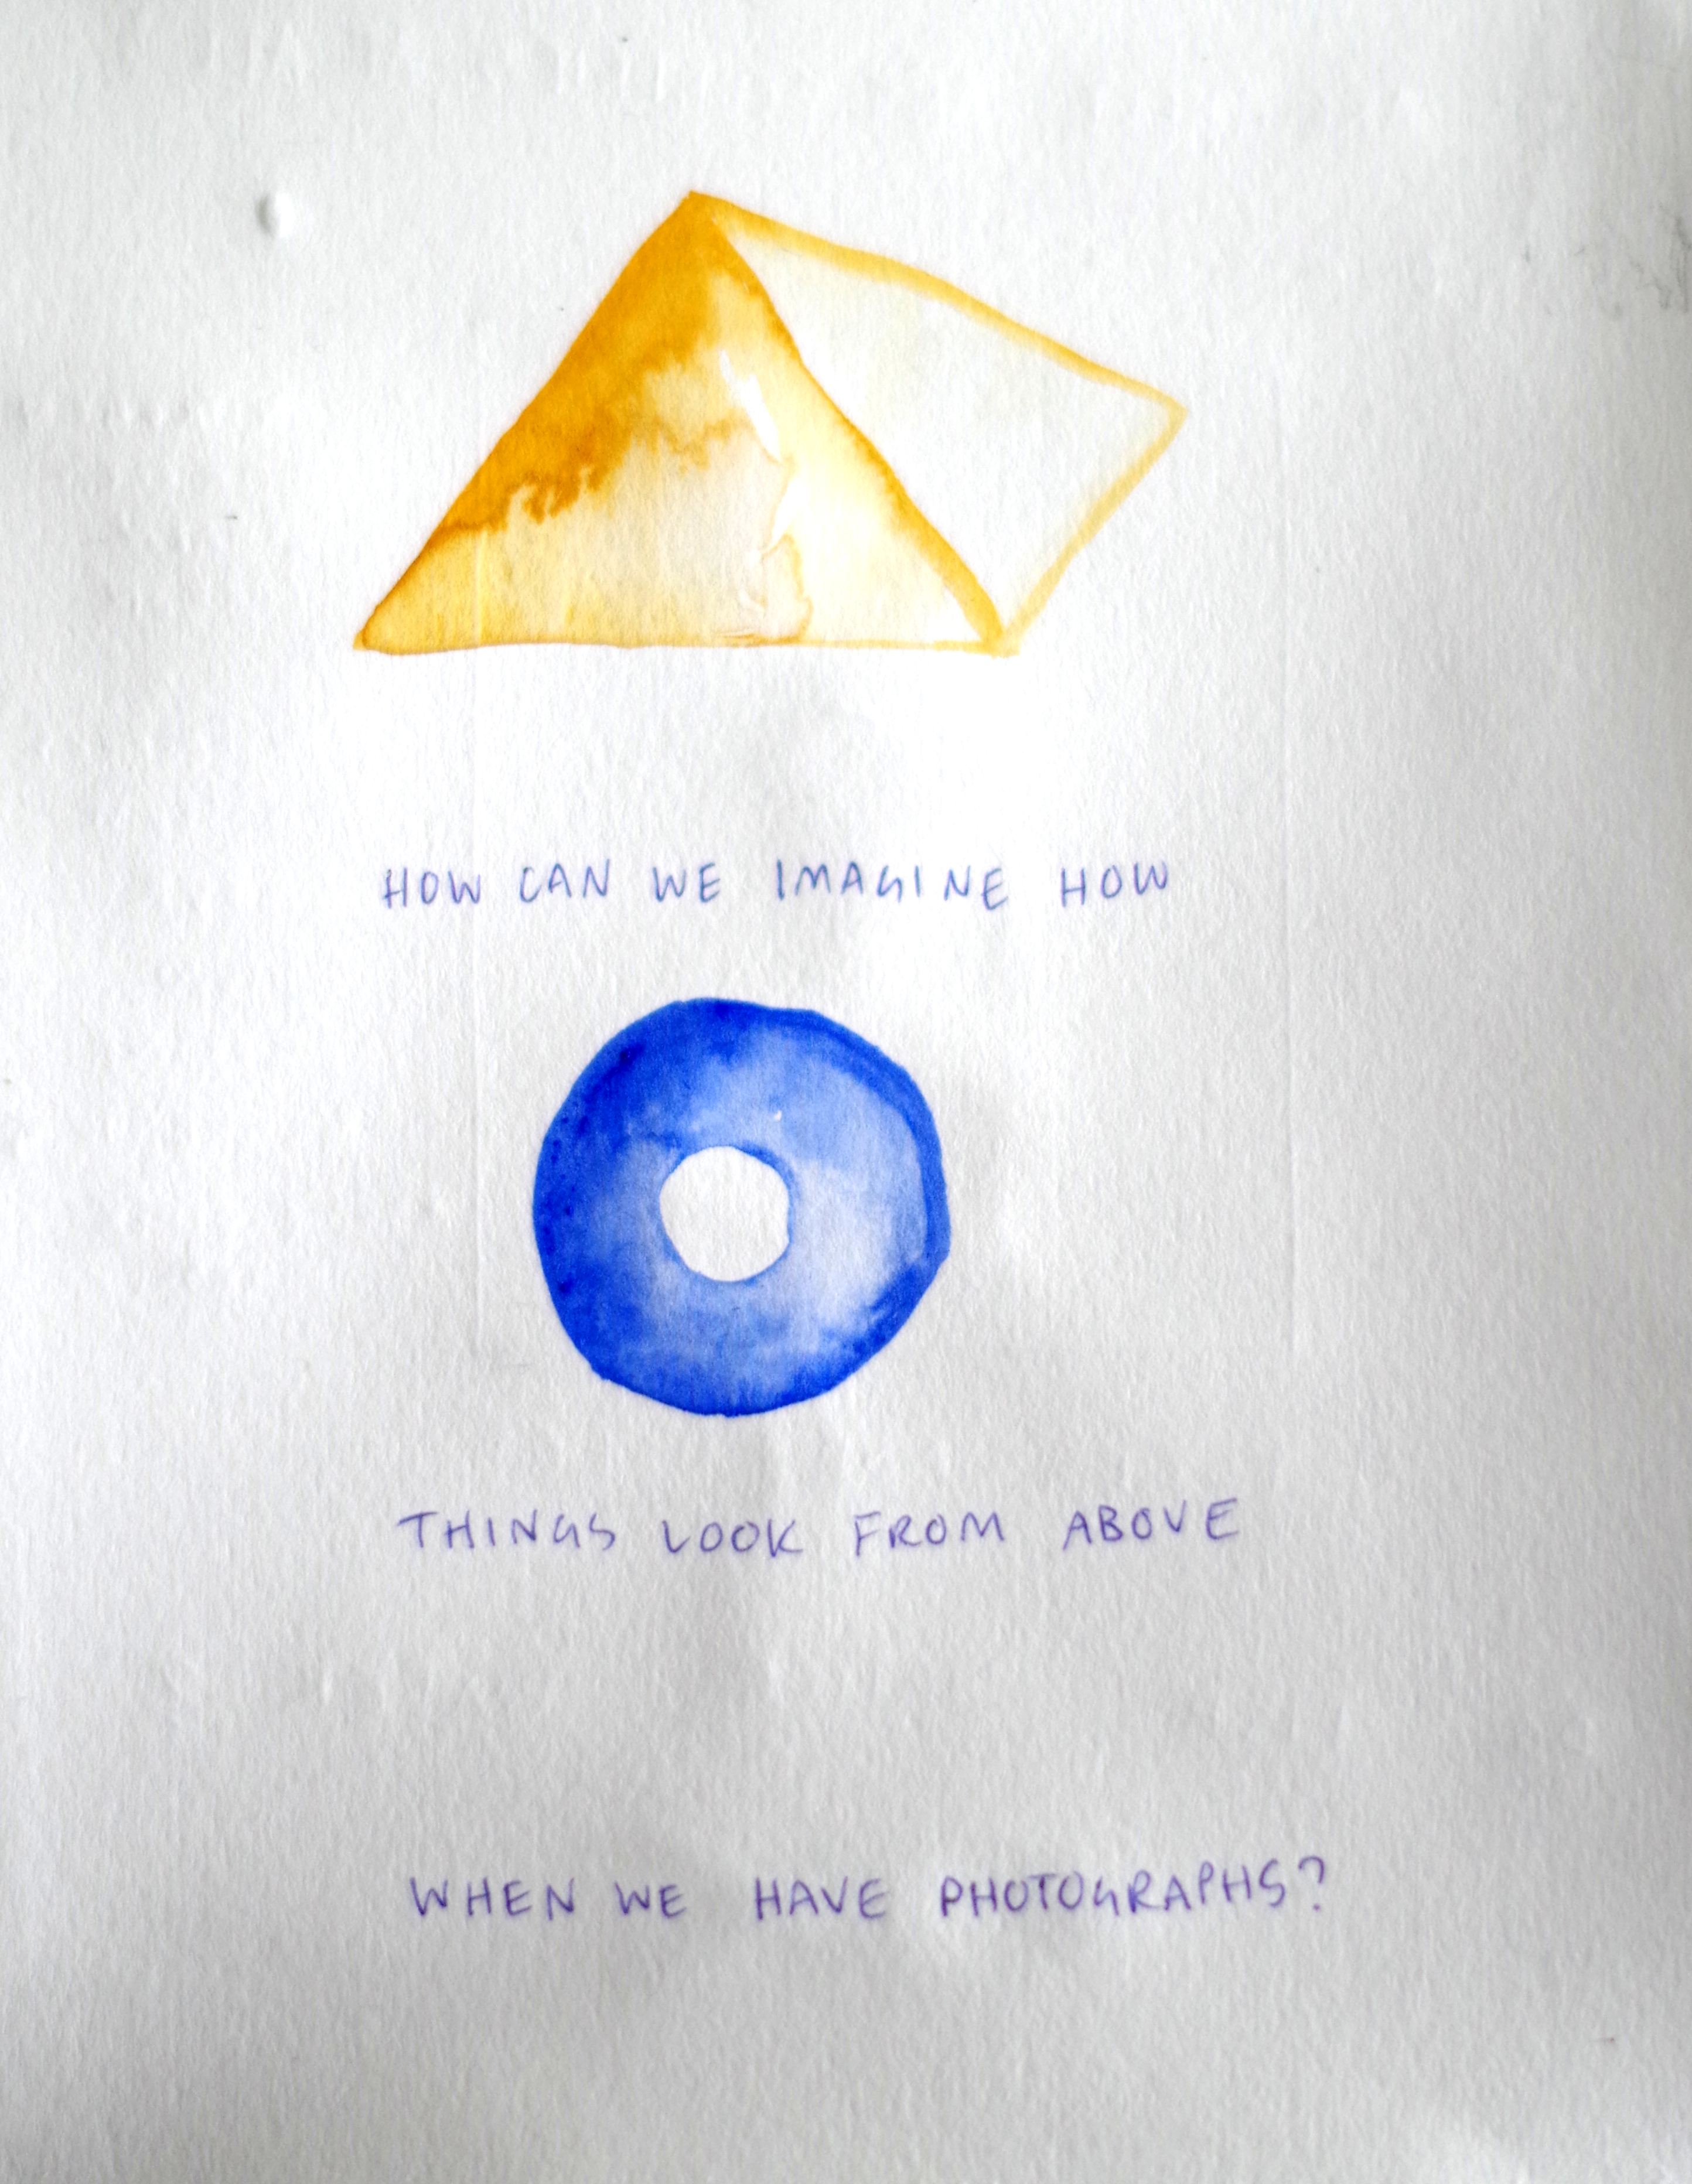 HOW CAN WE IMAGINE HOW
THINGS LOOK FROM ABOVE
WHEN WE HAVE PHOTOGRAPHS?